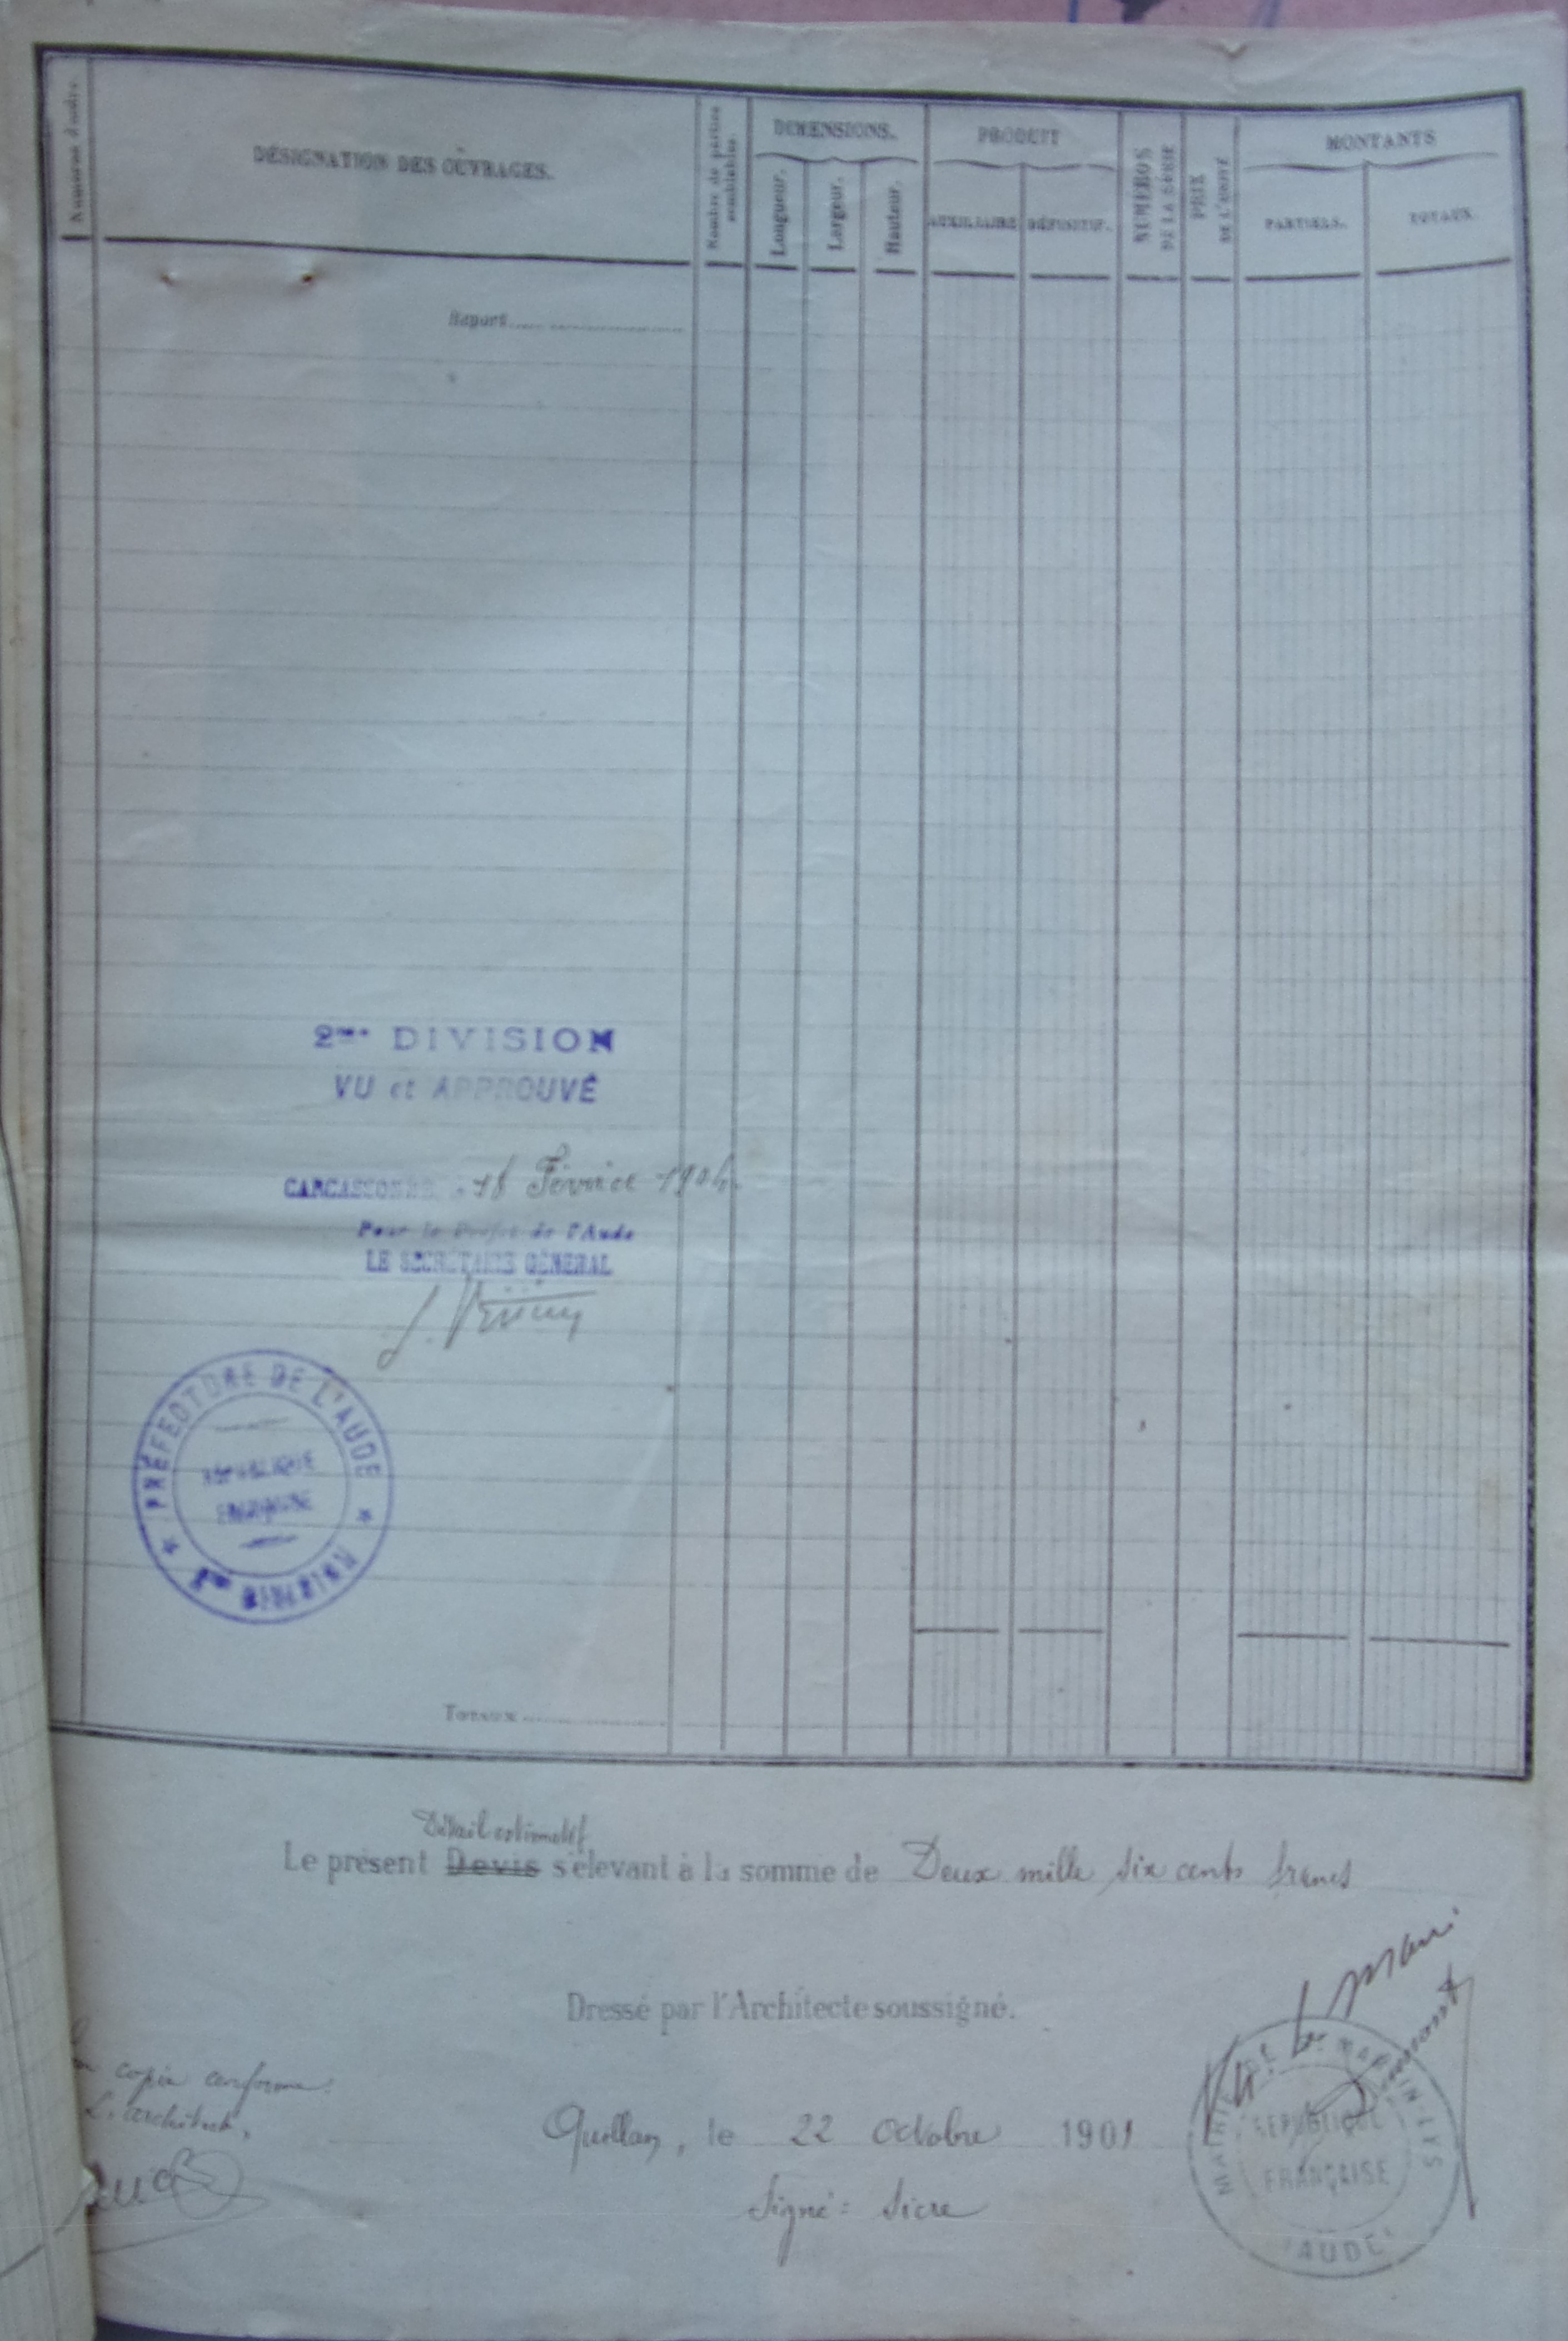 Numéros d'ordre
DÉSIGNATION DES OUVRAGES.
Nombre de parties
semblables.
DIMENSIONS.
Longueur.
Largeur.
Hauteur.
PRODUIT
AUXILIAIRE
DÉFINITIF.
NUMÉROS
DE LA SÉRIE
PRIX
DE L'UNITÉ
MONTANTS
PARTIELS.
TOTAUX.
Report
2me DIVISION
VU et APPROUVÉ
CARCASSONNE, 18 Février 1904.
Pour le Préfet de l'Aude
LE SECRÉTAIRE GÉNÉRAL
PRÉFECTURE DE L'AUDE
RÉPUBLIQUE
FRANÇAISE
DIVISION
Totaux
Détail estimatif
Le présent Devis s'élevant à la somme de Deux mille six cents francs
Dressé par l'Architecte soussigné.
copie conforme:
L'architecte,
Quillan, le 22 Octobre 1901
Signé: Sicre
Vu: Le Maire
MAIRIE DE St MARTIN-LYS
RÉPUBLIQUE
FRANÇAISE
(AUDE)